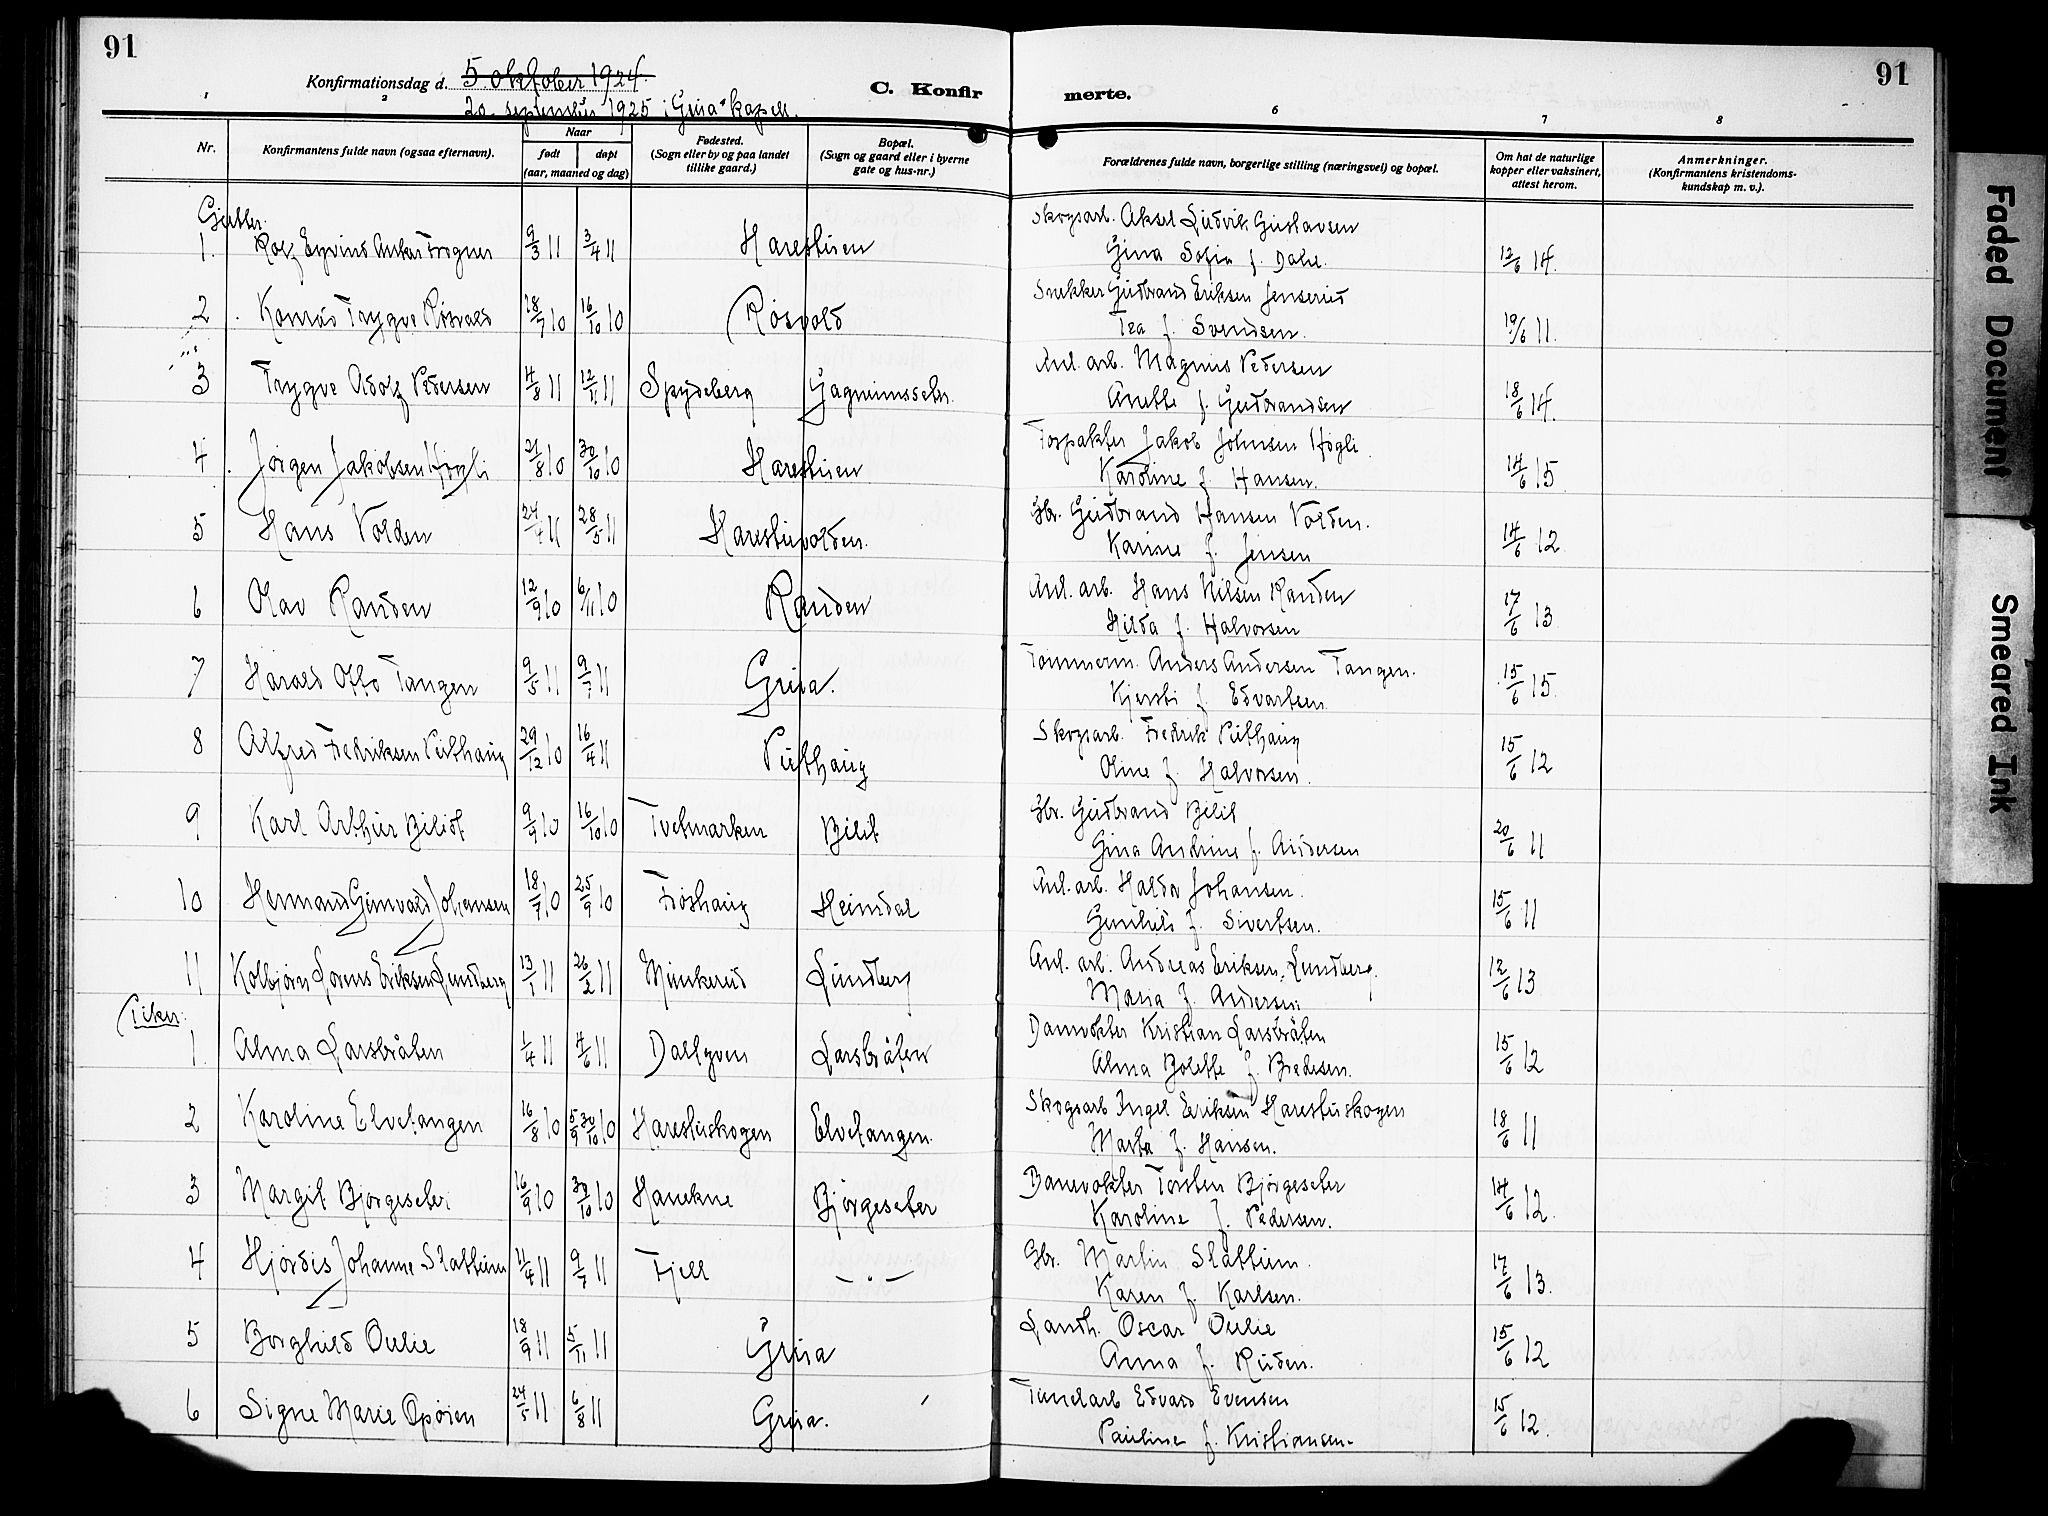 91
91
Konfirmationsdag d. 5. oktober 1924.
20. september 1925 i Grua kapell.
C. Konfirmerte.
1 2 6 7 8
Nr. Konfirmantens fulde navn (ogsaa efternavn). Naar født døpt (aar, maaned og dag) Fødested. (Sogn eller by og paa landet tillike gaard.) Bopæl. (Sogn og gaard eller i byerne gate og hus-nr.) Forældrenes fulde navn, borgerlige stilling (næringsvei) og bopæl. Om hat de naturlige kopper eller vaksinert, attest herom. Anmerkninger. (Konfirmantens kristendoms-kundskap m. v.).
Gutter.
1. Rolf Eyvind Anker Frogner 9/3 11 3/4 11 Harestuen Skogsarb. Aksel Ludvik Gustavsen
Gina Sofia f. Dahl. 12/6 14.
2 Konrad Trygve Røsvold 28/7 10 16/10 10 Røsvold Snekker Gudbrand Eriksen Jenserud
Tea f. Svendsen. 19/6 11.
3 Trygve Adolf Pedersen 4/8 11 12/11 11 Spydeberg Gagnumsseter. Anl. arb. Magnus Pedersen
Anette f. Gudbrandsen 18/6 14.
4 Jørgen Jakobsen Høgli 21/8 10 30/10 10 Harestuen Forpakter Jakob Johnsen Høgli
Karoline f. Hansen. 14/6 15
5 Hans Volden 24/4 11 28/5 11 Harestuvolden. Gbr. Gudbrand Hansen Volden.
Karine f. Jensen 14/6 12
6 Olav Randen 12/9 10 6/11 10 Randen Anl. arb. Hans Nilsen Randen
Hilda f. Halvorsen 17/6 13
7 Harald Otto Tangen 9/5 11 9/7 11 Grua. Tømmerm. Anders Andersen Tangen.
Kjersti f. Edvartsen 15/6 15.
8 Alfred Fredriksen Puthaug 29/12 10 16/4 11 Puthaug Skogsarb. Fredrik Puthaug
Oline f. Halvorsen. 15/6 12
9 Karl Arthur Bilit 9/9 10 16/10 10 Tvetmarken Bilit Gbr. Gudbrand Bilit
Gina Andrine f. Andersen 20/6 11
10 Hermand Gunvald Johansen 18/7 10 25/9 10 Frøshaug Heimdal Anl. arb. Haldor Johansen.
Gunhild f. Sivertsen. 15/6 11
11 Kolbjørn Lorens Eriksen Lundberg 13/1 11 26/2 11 Munkerud Lundberg Anl. arb. Andreas Eriksen Lundberg.
Maria f. Andersen. 12/6 13
Piker:
1. Alma Larsbråten 1/4 11 4/6 11 Larsbråten Damvokter Kristian Larsbråten
Alma Bolette f. Bredesen. 15/6 12
2 Karoline Elvetangen 16/8 10 30/10 10 Harestuskogen Elvetangen. Skogsarb Ingel Eriksen Harestuskogen
Marta f. Hansen. 18/6 11
3 Margit Bjørgeseter 16/9 10 30/10 10 Hanekne Bjørgeseter Banevokter Torsten Bjørgeseter
Karoline f. Pedersen. 14/6 12.
4 Hjørdis Johanne Slattum 11/4 11 9/7 11 Fjell —"— Gbr. Martin Slattum.
Karen f. Karlsen. 17/6 13.
5 Borghild Oulie 18/9 11 5/11 11 Grua Landh. Oscar Oulie
Anna f. Ruden. 15/6 12
6 Signe Marie Opøien 24/5 11 6/8 11 Grua. Tunelarb Edvard Evensen
Pauline f. Kristiansen. 15/6 12.
Faded Document
Smeared Ink